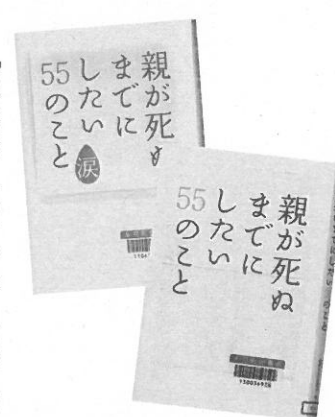 親が死ぬ
までに
したい
55のこと
涙
親が死ぬ
までに
したい
55のこと